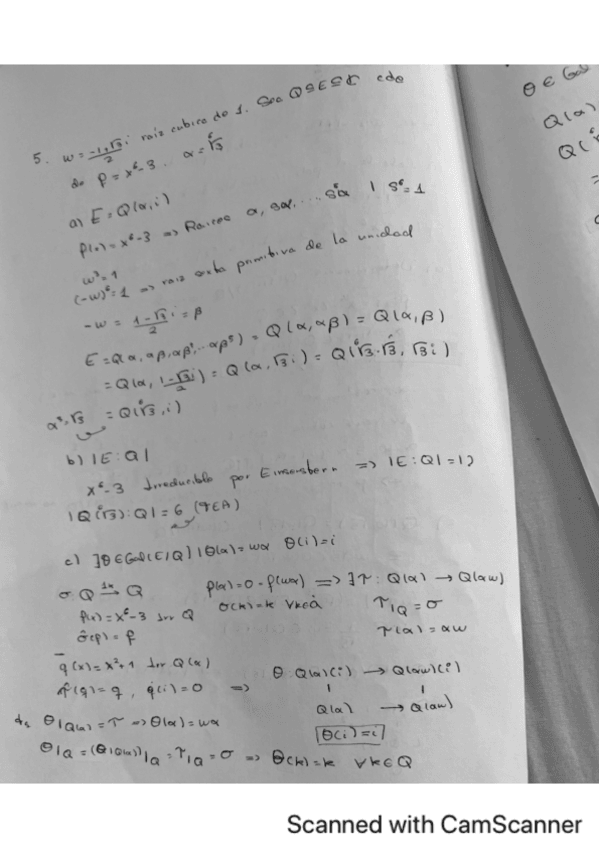 5. w = -1+√3 i / 2 raiz cubica de 1. Sea Q⊆E⊆C cdo
de f = x⁶-3 . α = ⁶√3
a) E = Q(α, i)
f(x) = x⁶-3 => Raices α, sα, ... s⁵α | s⁶ = 1
w³ = 1
(-w)⁶ = 1 => raiz sexta primitiva de la unidad
-w = 1-√3 i / 2 = β
E = Q(α, αβ, αβ², ... αβ⁵) = Q(α, αβ) = Q(α, β)
= Q(α, 1-√3i / 2) = Q(α, √3 i) = Q(⁶√3, √3, √3 i)
α³ = √3 = Q(⁶√3, i)
b) |E:Q|
x⁶-3 Irreducible por => |E:Q| = 12
|Q(⁶√3):Q| = 6
c) ∃θ∈Gal(E/Q) | θ(α) = wα θ(i) = i
σ: Q → Q f(α) = 0 = f(wα) => ∃τ: Q(α) → Q(αw)
f(x) = x⁶-3 Irr Q σ(k) = k ∀k∈Q τ|Q = σ
σ̂(f) = f τ(α) = αw
q(x) = x²+1 Irr Q(α) θ: Q(α)(i) → Q(αw)(i)
τ̂(q) = q, q(i) = 0 => Q(α) → Q(αw)
θ|Q(α) = τ => θ(α) = wα θ(i) = i
θ|Q = (θ|Q(α))|Q = τ|Q = σ => θ(k) = k ∀k∈Q
θ ∈ Gal
Q(α)
Scanned with CamScanner